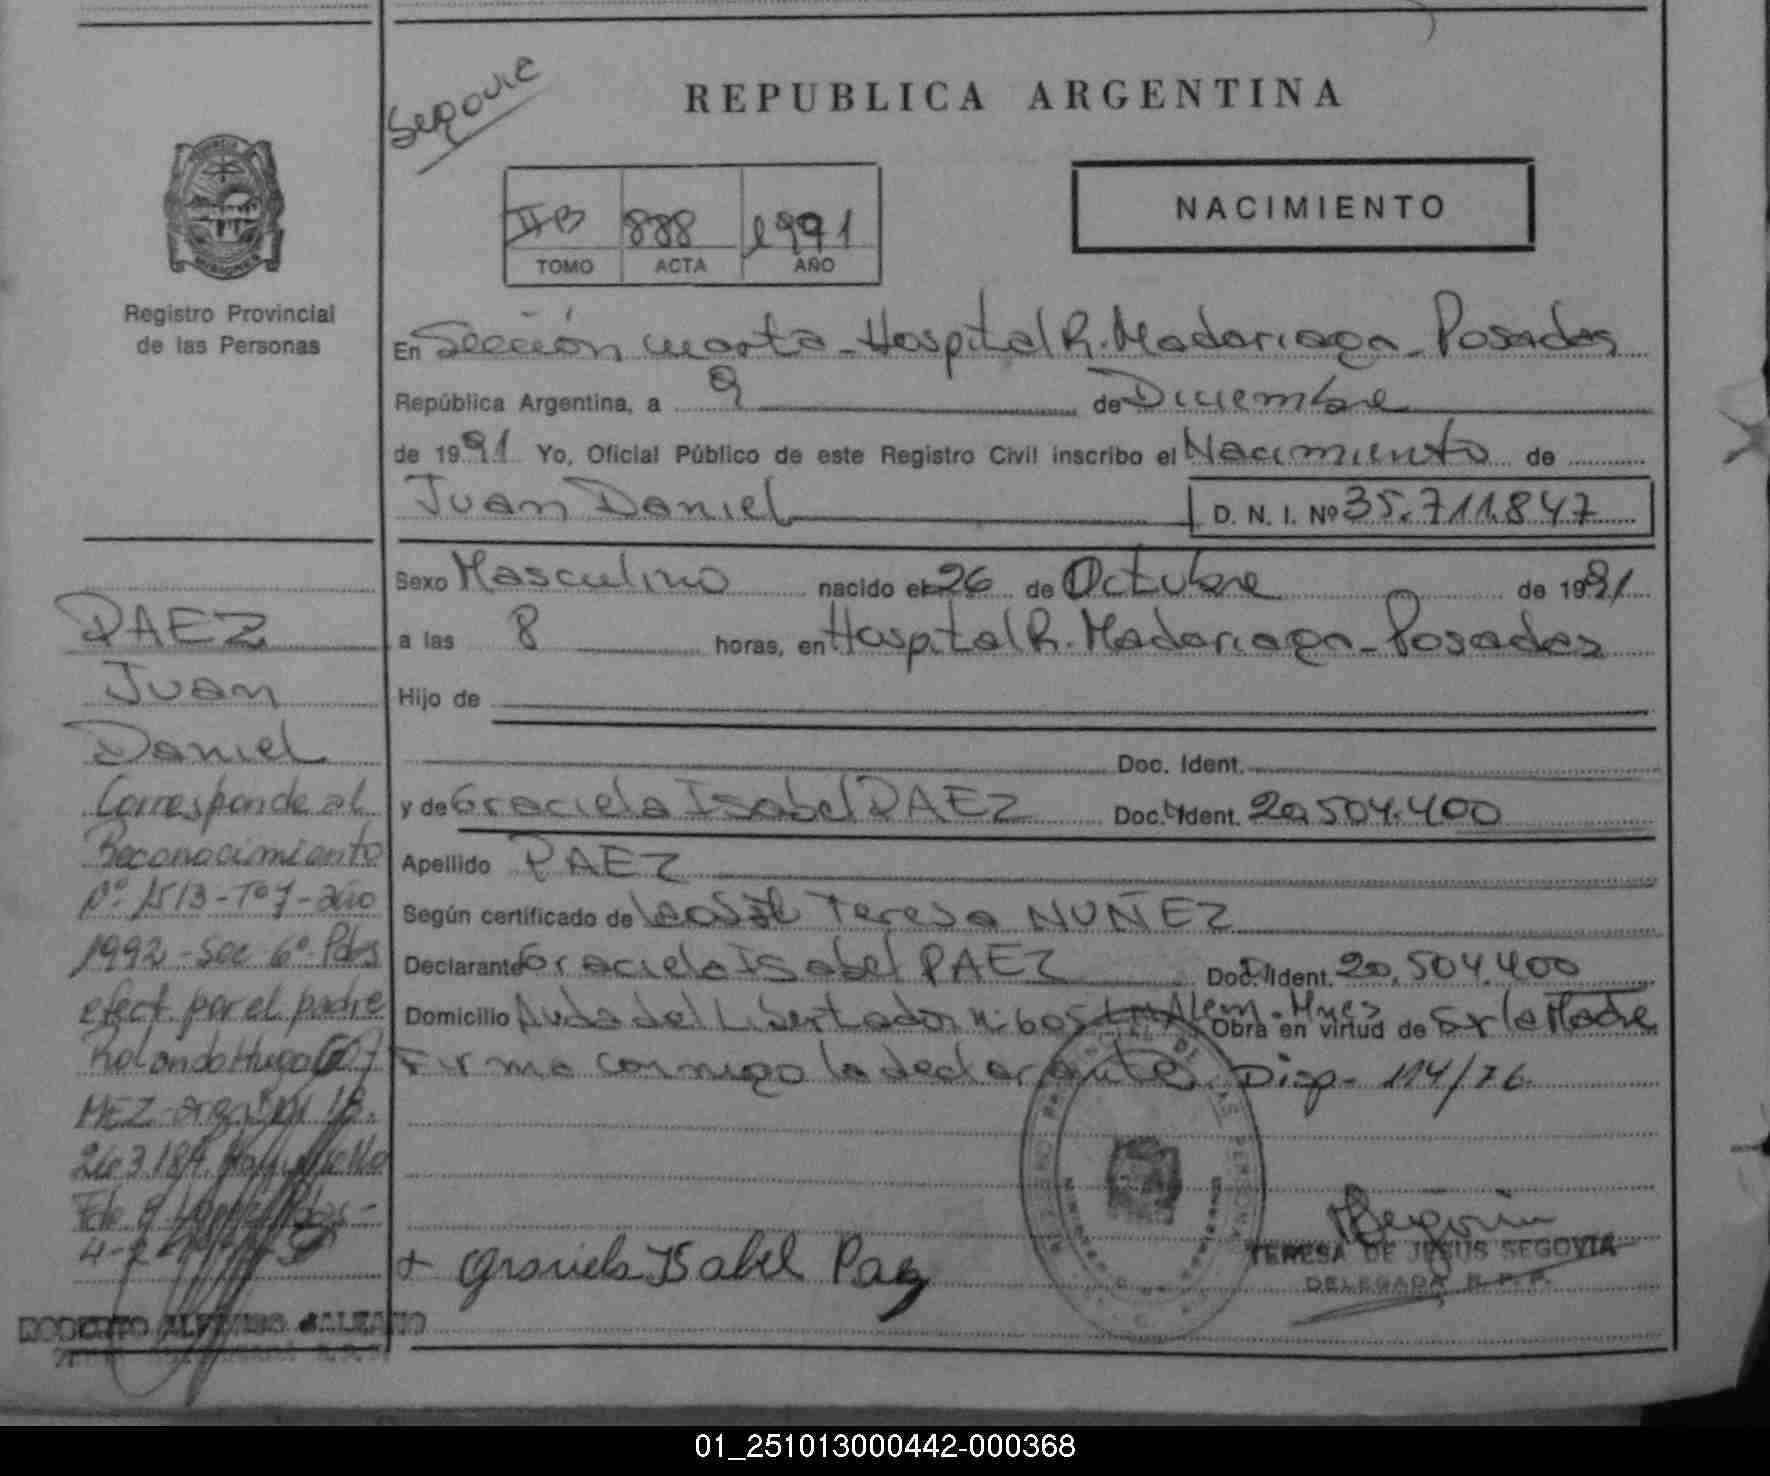 Segovia
REPUBLICA ARGENTINA
NACIMIENTO
IIB 888 1991
TOMO ACTA AÑO
Registro Provincial
de las Personas
En Sección cuarta - Hospital R. Madariaga - Posadas
República Argentina, a 9 de Diciembre
de 1991 Yo, Oficial Público de este Registro Civil inscribo el Nacimiento de
Juan Daniel D. N. I. Nº 35.711.847
Sexo Masculino nacido el 26 de Octubre de 1991
a las 8 horas, en Hospital R. Madariaga - Posadas
Hijo de
Doc. Ident.
y de Graciela Isabel PAEZ Doc. Ident. 20.504.400
Apellido PAEZ
Según certificado de Teresa NUÑEZ
Declarante Graciela Isabel PAEZ Doc. Ident. 20.504.400
Domicilio Avda del Libertador Nº 605 - Alem - Mnes Obra en virtud de ser la Madre
Firma conmigo la declarante. Disp. 114/76
Graciela Isabel Paez
TERESA DE JESUS SEGOVIA
DELEGADA R. P. P.
PAEZ
Juan
Daniel
Corresponde al
Reconocimiento
Nº 1513 - Tº 7 - año
1992 - Sec 6º Pdas
efect. por el padre
Rolando Hugo
MEZ
ROBERTO GALEANO
01_251013000442-000368